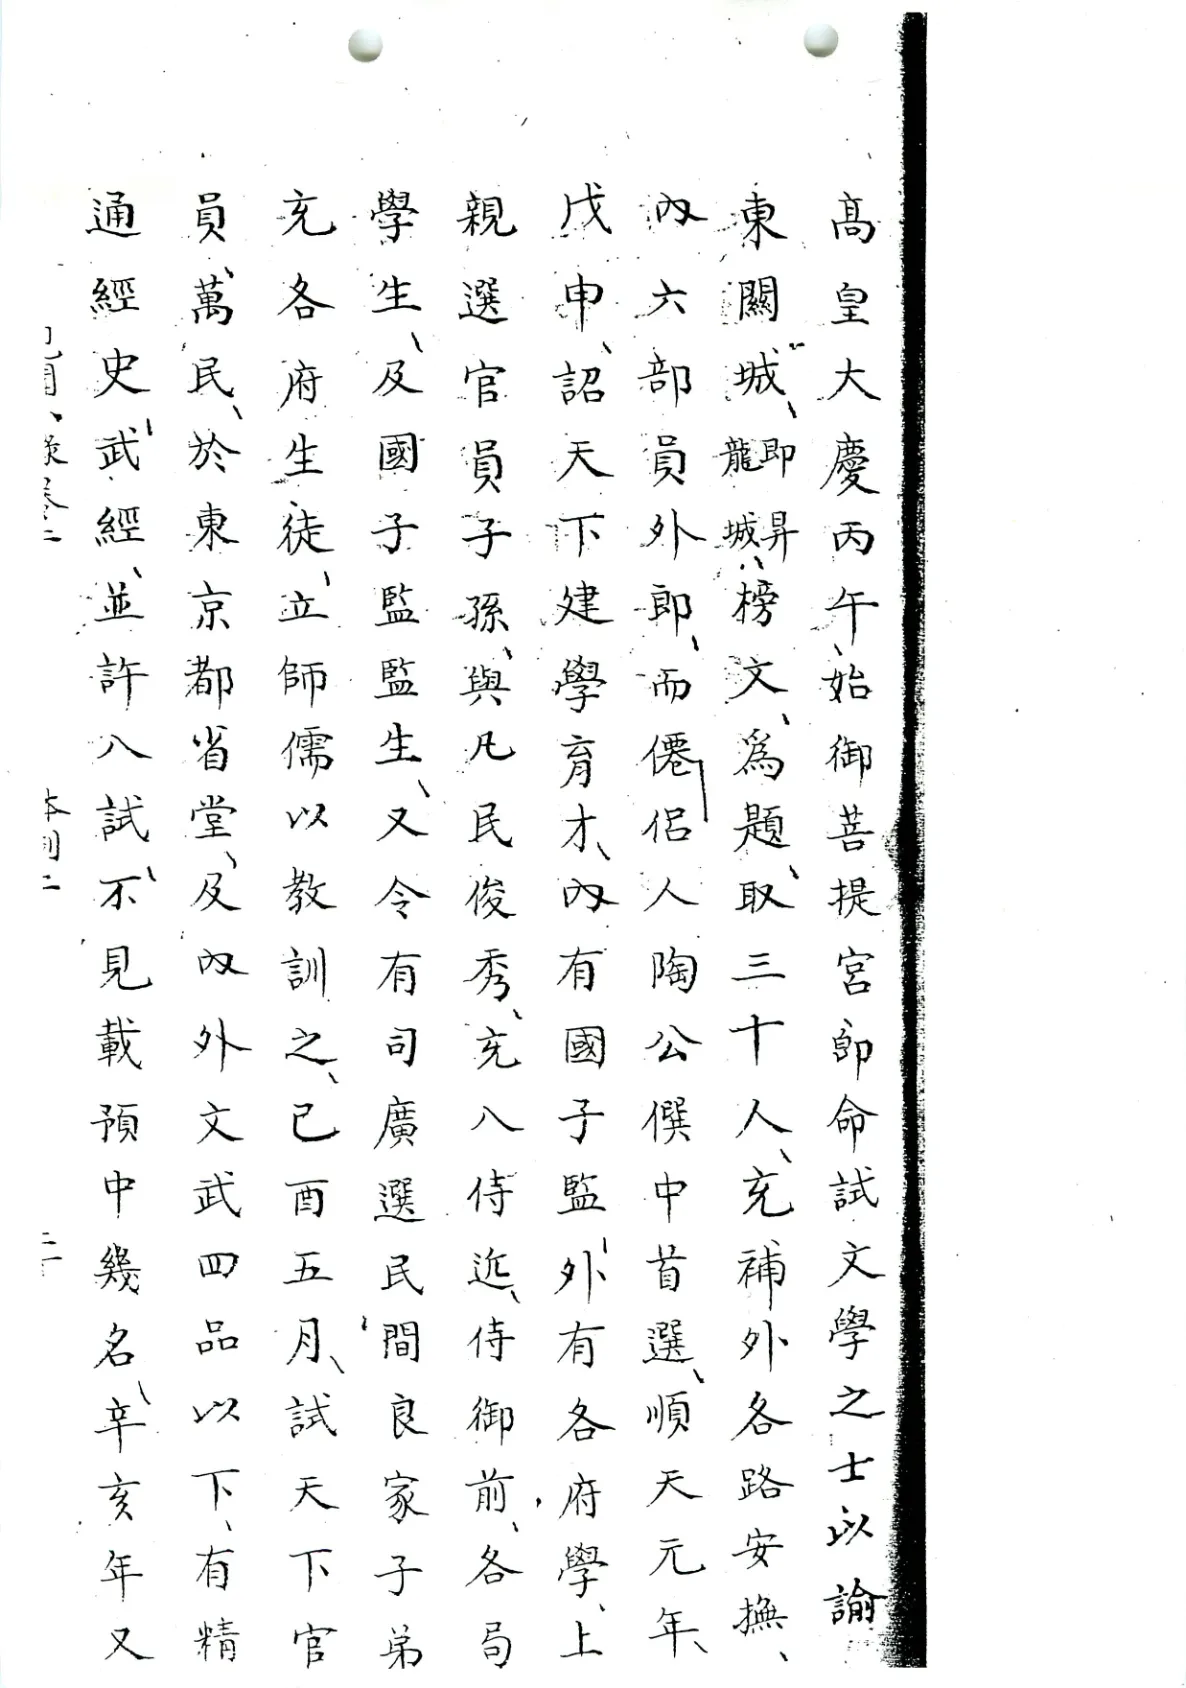 髙皇大慶丙午、始御菩提宮、即命試文學之士、以諭
東關城、即昇龍城、榜文、爲題、取三十人、充補外各路安撫、
內六部員外郎、而僊侶人陶公僎中首選、順天元年、
戊申、詔天下建學育才、內有國子監、外有各府學、上
親選官員子孫、與凡民俊秀、充入侍近、侍御前、各局
學生、及國子監監生、又令有司廣選民間良家子弟
充各府生徒、立師儒以教訓之、己酉五月、試天下官
員、萬民、於東京都省堂、及內外文武四品以下、有精
通經史武經、並許入試、不見載預中幾名、辛亥年又
卷二
本刊二
二